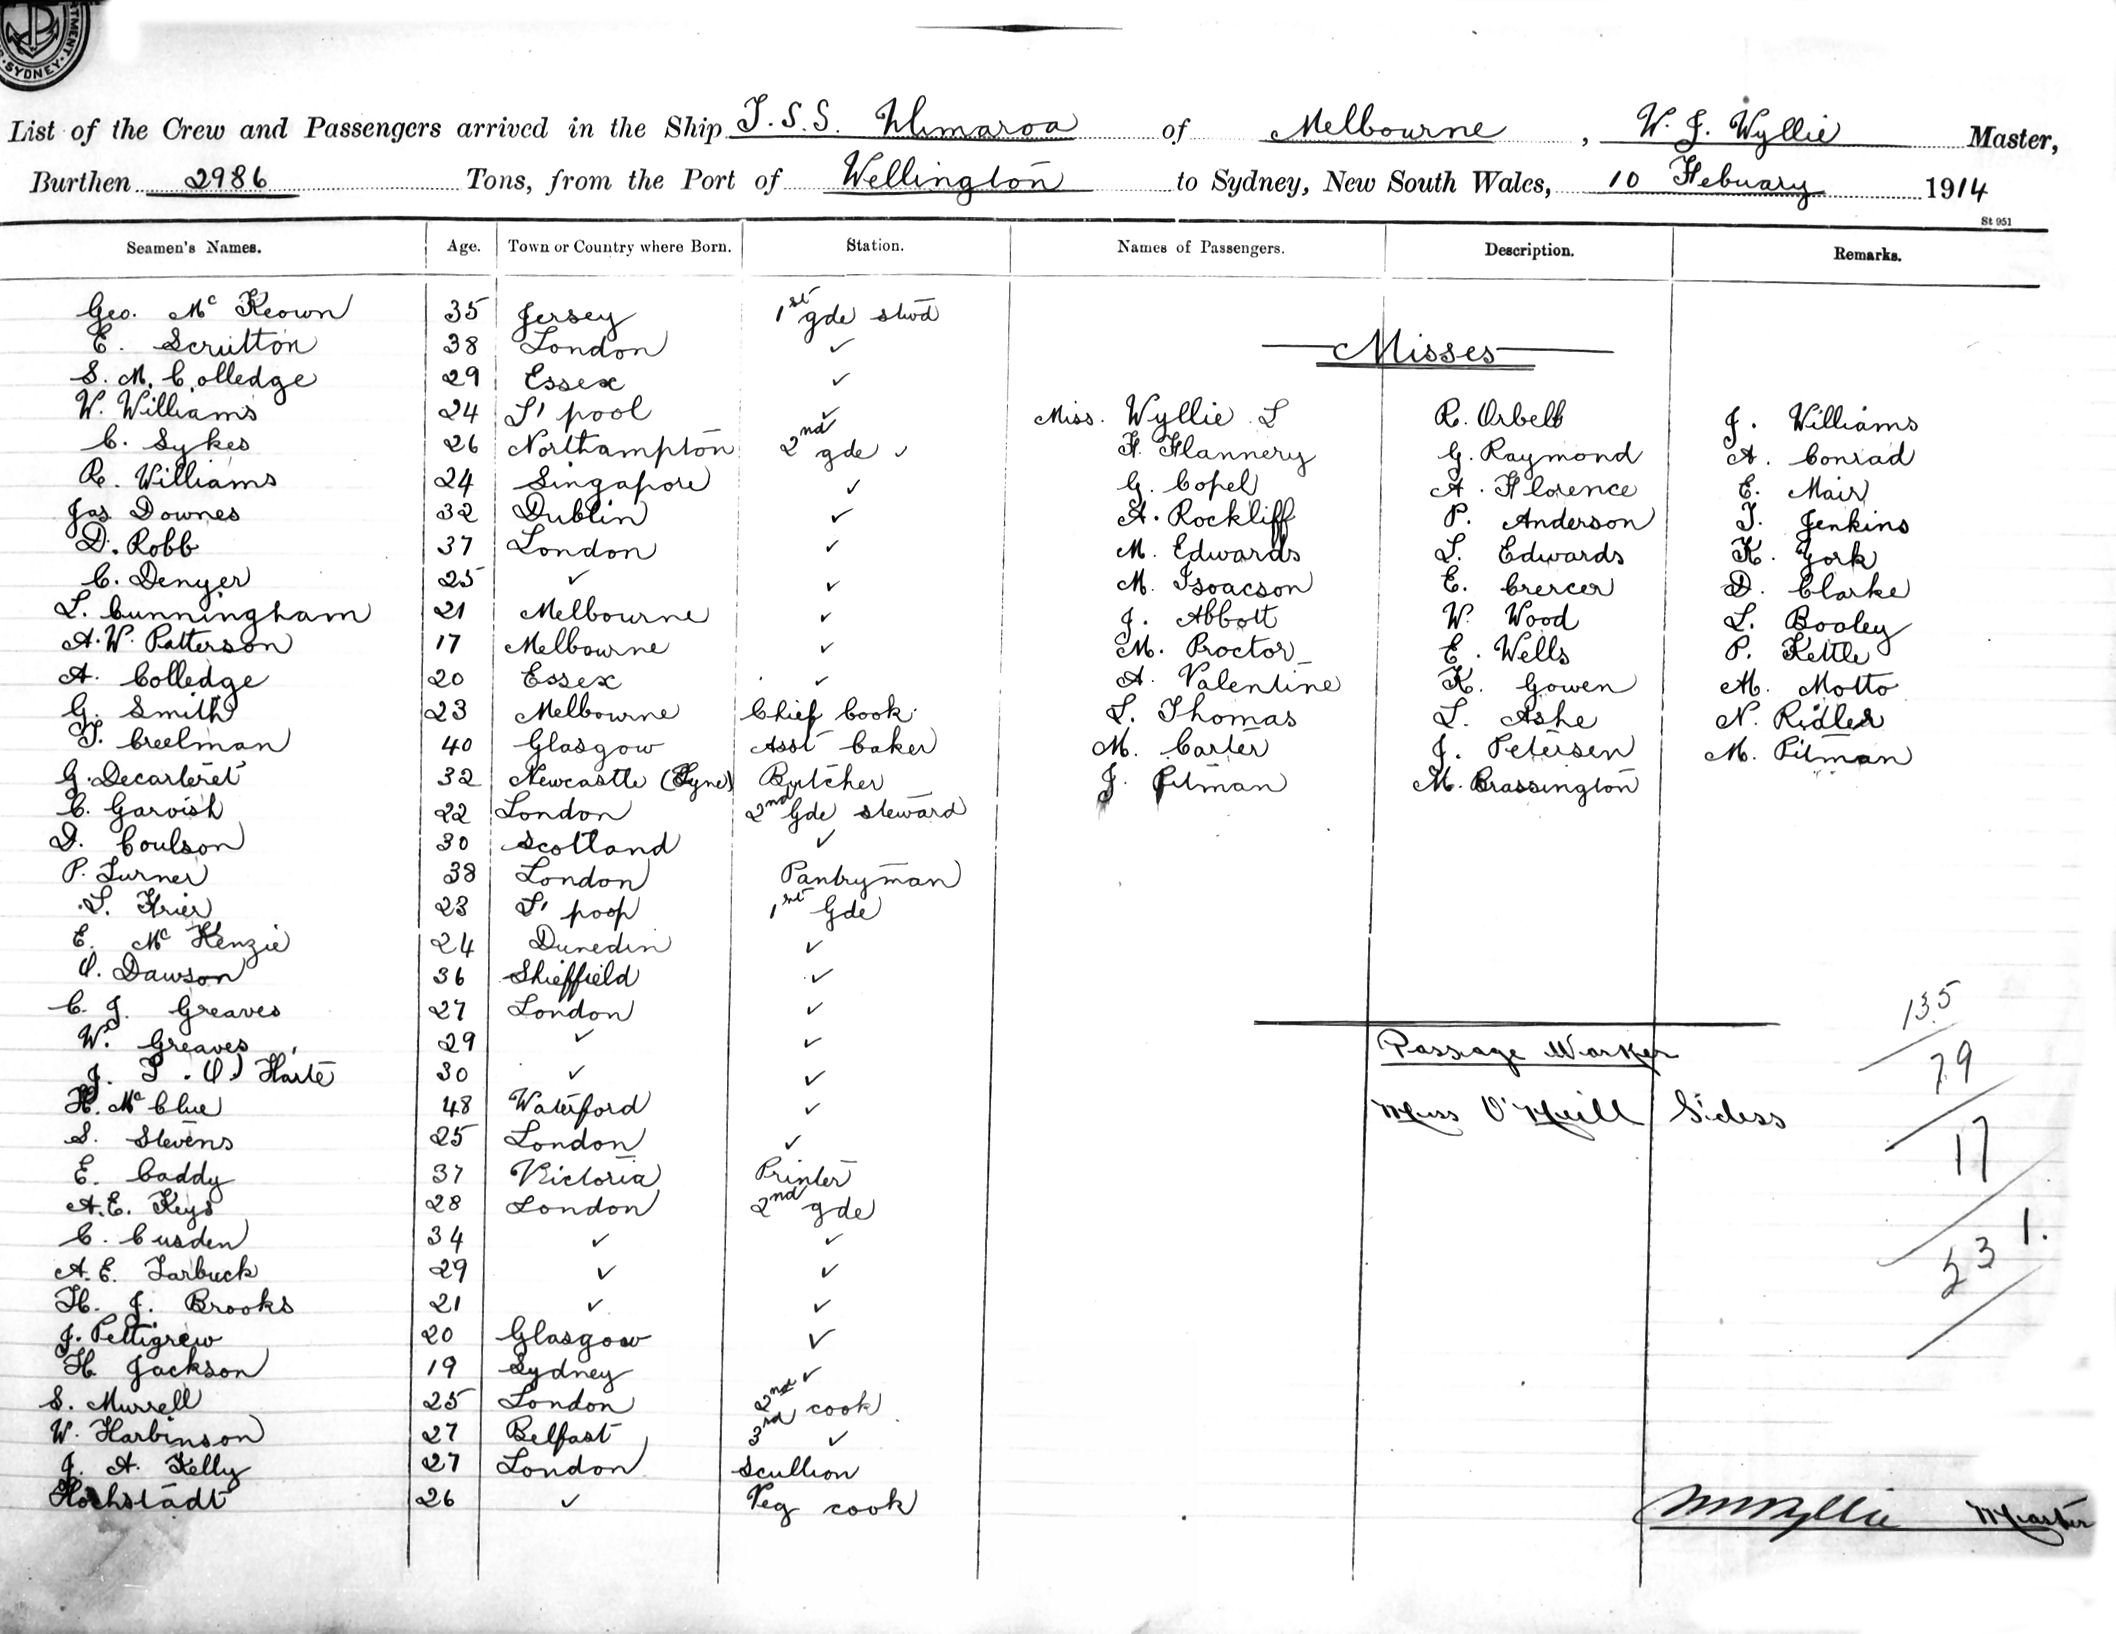 SYDNEY
List of the Crew and Passengers arrived in the Ship T.S.S. Ulimaroa of Melbourne, W. J. Wyllie Master,
Burthen 2986 Tons, from the Port of Wellington to Sydney, New South Wales, 10 Febuary 1914
St 951
Seamen's Names. Age. Town or Country where Born. Station. Names of Passengers. Description. Remarks.
Geo. Mc Keown 35 Jersey 1st gde stwd
E. Scrutton 38 London ✓
Misses
S. M. Colledge 29 Essex ✓
W. Williams 24 L'pool ✓ Miss. Wyllie L R. Orbell J. Williams
C. Sykes 26 Northampton 2nd gde ✓ F. Flannery G. Raymond A. Conrad
R. Williams 24 Singapore ✓ G. Copel A. Florence E. Mair
Jas Downes 32 Dublin ✓ A. Rockliff P. Anderson J. Jenkins
D. Robb 37 London ✓ M. Edwards L. Edwards K. York
C. Denyer 25 ✓ ✓ M. Isoacson E. Crercer D. Clarke
L. Cunningham 21 Melbourne ✓ J. Abbott W. Wood L. Booley
A. W. Patterson 17 Melbourne ✓ M. Proctor E. Wells P. Kettle
A. Colledge 20 Essex ✓ A. Valentine K. Gowen M. Motto
G. Smith 23 Melbourne Chief Cook L. Thomas L. Ashe N. Ridler
T. Creelman 40 Glasgow Asst baker M. Carter J. Petersen M. Pitman
G. Decarteret 32 Newcastle (Tyne) Butcher J. Pitman M. Brassington
C. Garvish 22 London 2nd Gde steward
D. Coulson 30 Scotland ✓
P. Turner 38 London Pantryman
L. Frier 23 L'pool 1st Gde
E. Mc Kenzie 24 Dunedin ✓
O. Dawson 36 Shieffield ✓
C. J. Greaves 27 London ✓ 135
W. Greaves 29 ✓ ✓ Passage Worker 79
J. P. O' Harte 30 ✓ ✓
H. Mc Clue 48 Waterford ✓ Miss O'Neill S'dess
S. Stevens 25 London ✓ 17
E. Caddy 37 Victoria Printer
A. E. Keys 28 London 2nd gde
C. Cusden 34 ✓ ✓ 1.
A. E. Tarbuck 29 ✓ ✓ 53
H. J. Brooks 21 ✓ ✓
J. Pettigrew 20 Glasgow ✓
H Jackson 19 Sydney ✓
S. Murrell 25 London 2nd cook
W. Harbinson 27 Belfast 3rd ✓
J. A. Kelly 27 London Scullion
Hochstadt 26 ✓ Veg cook
W J Wyllie Master